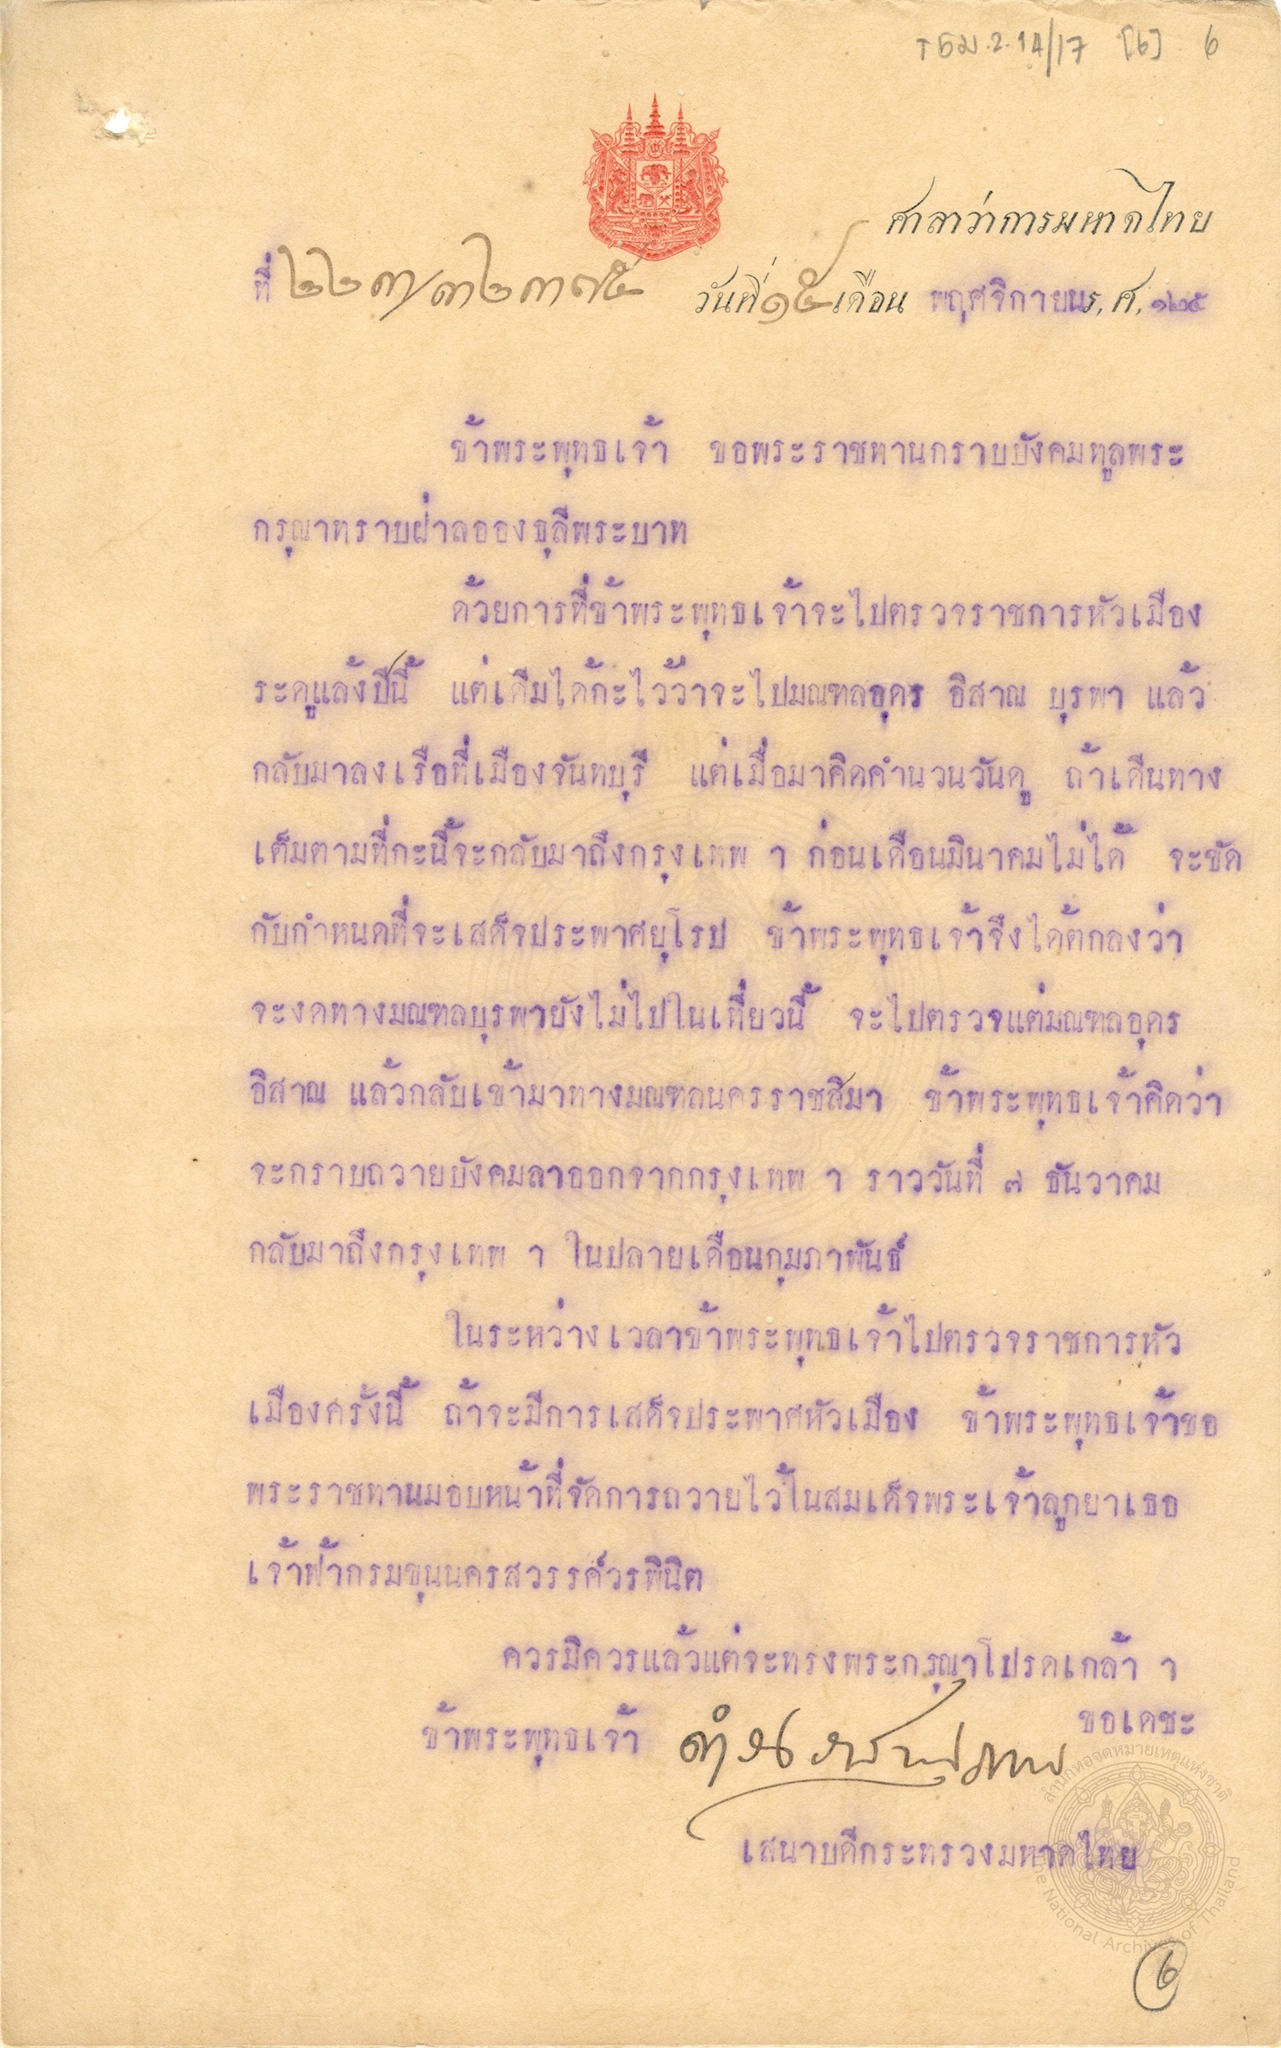 ร5ม.2.14/17 [๖] ๖
ศาลาว่าการมหาดไทย
ที่ ๒๒๓/๓๒๓๗๕ วันที่ ๑๕ เดือน พฤศจิกายน ร,ศ,๑๒๕
ข้าพระพุทธเจ้า ขอพระราชทานกราบบังคมทูลพระ
กรุณาทราบฝ่าลอองธุลีพระบาท
ด้วยการที่ข้าพระพุทธเจ้าจะไปตรวจราชการหัวเมือง
ระดูแล้งปีนี้ แต่เดิมได้กะไว้ว่าจะไปมณฑลอุดร อิสาณ บุรพา แล้ว
กลับมาลงเรือที่เมืองจันทบุรี แต่เมื่อมาคิดคำนวนวันดู ถ้าเดินทาง
เต็มตามที่กะนี้จะกลับมาถึงกรุงเทพ ฯ ก่อนเดือนมินาคมไม่ได้ จะขัด
กับกำหนดที่จะเสด็จประพาศยุโรป ข้าพระพุทธเจ้าจึงได้ตกลงว่า
จะงดทางมณฑลบุรพายังไม่ไปในเที่ยวนี้ จะไปตรวจแต่มณฑลอุดร
อิสาณ แล้วกลับเข้ามาทางมณฑลนครราชสิมา ข้าพระพุทธเจ้าคิดว่า
จะกราบถวายบังคมลาออกจากกรุงเทพ ฯ ราววันที่ ๗ ธันวาคม
กลับมาถึงกรุงเทพ ฯ ในปลายเดือนกุมภาพันธ์
ในระหว่างเวลาข้าพระพุทธเจ้าไปตรวจราชการหัว
เมืองครั้งนี้ ถ้าจะมีการเสด็จประพาศหัวเมือง ข้าพระพุทธเจ้าขอ
พระราชทานมอบหน้าที่จัดการถวายไว้ในสมเด็จพระเจ้าลูกยาเธอ
เจ้าฟ้ากรมขุนนครสวรรค์วรพินิต
ควรมิควรแล้วแต่จะทรงพระกรุณาโปรดเกล้า ฯ
ขอเดชะ
ข้าพระพุทธเจ้า ดำรงราชานุภาพ
เสนาบดีกระทรวงมหาดไทย
สำนักหอจดหมายเหตุแห่งชาติ
The National Archives of Thailand
๖